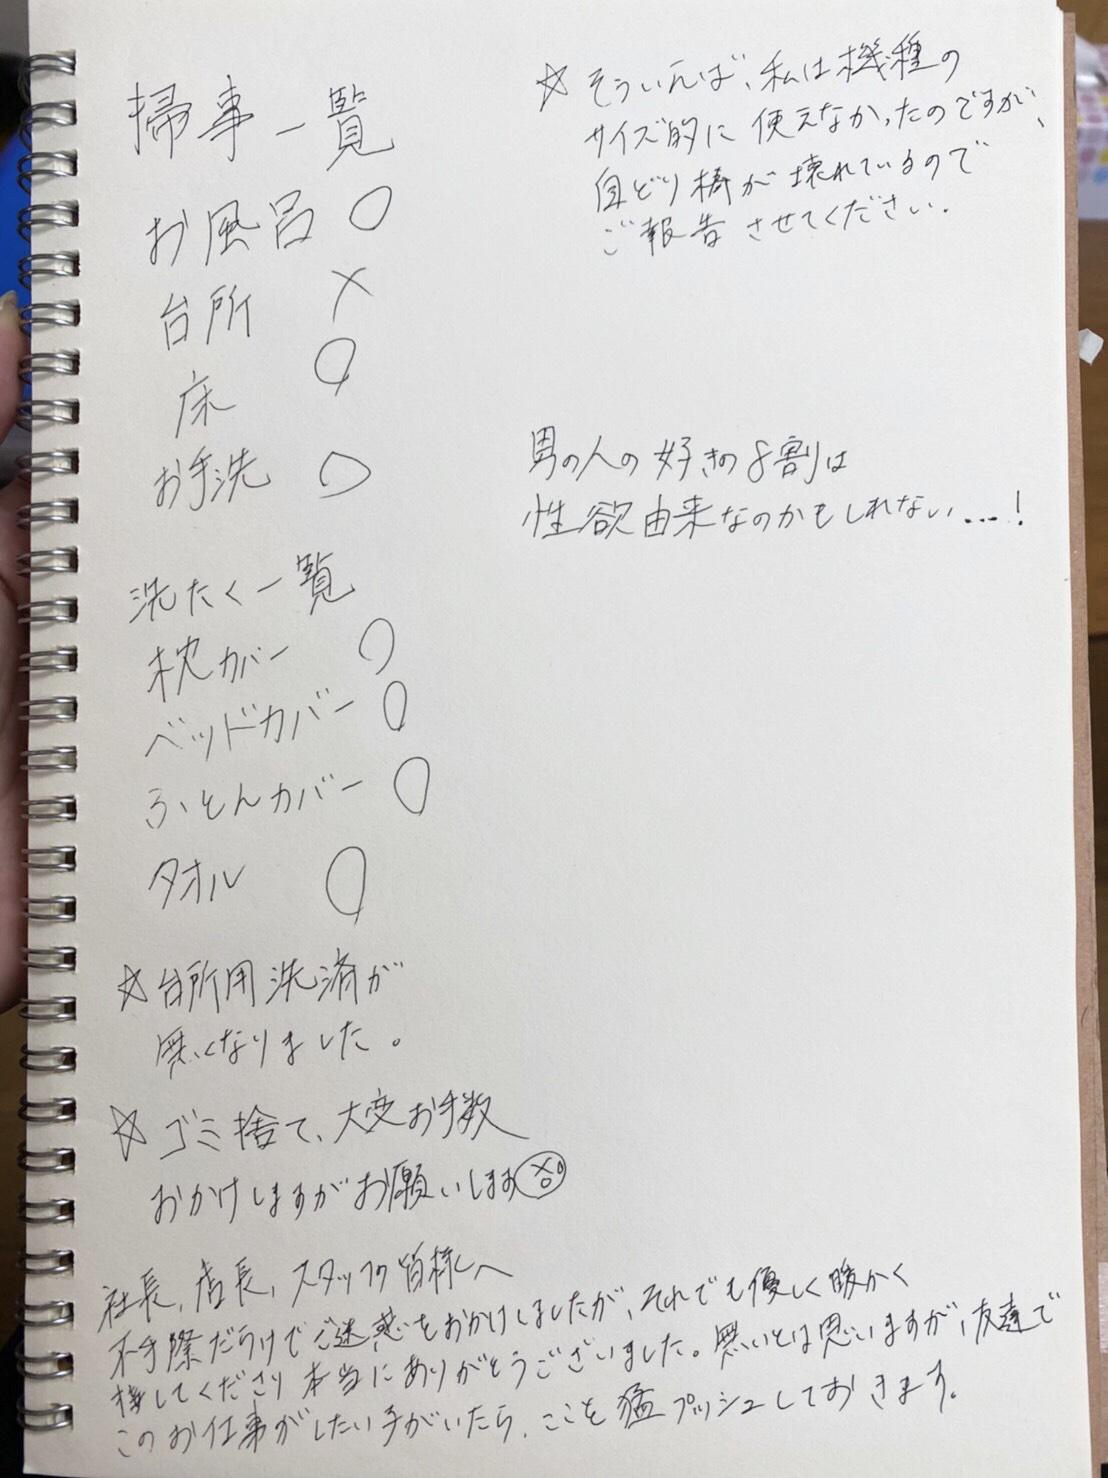 掃事一覧
お風呂 〇
台所 ×
床 〇
お手洗 〇
洗たく一覧
枕カバー 〇
ベッドカバー 〇
ふとんカバー 〇
タオル 〇
☆台所用洗済が
無くなりました。
☆ゴミ捨て、大変お手数
おかけしますがお願いします
社長、店長、スタッフの皆様へ
不手際だらけでご迷惑をおかけしましたが、それでも優しく暖かく
接してくださり本当にありがとうございました。無いとは思いますが、友達で
このお仕事がしたい子がいたら、ここを猛プッシュしておきます。
☆そういえば、私は機種の
サイズ的に使えなかったのですが、
自どり棒が壊れているので
ご報告させてください。
男の人の好きの8割は
性欲由来なのかもしれない…!